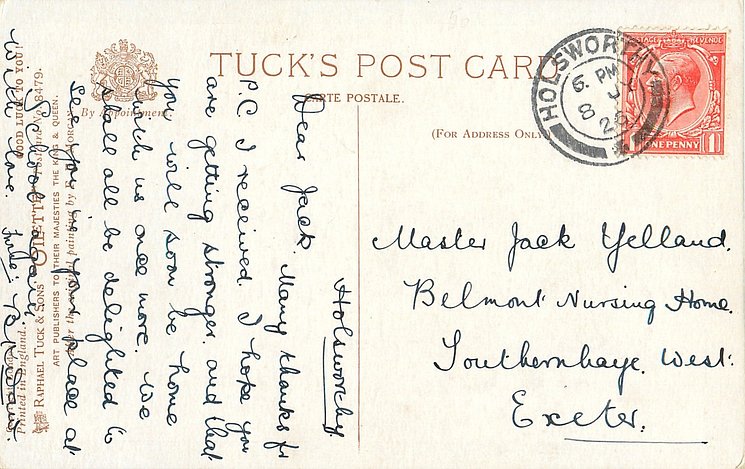 TUCK'S POST CARD
CARTE POSTALE.
By Appointment
(For Address Only)
HOLSWORTHY
6. PM
8
28
POSTAGE REVENUE
ONE PENNY
1
Holsworthy.
Dear Jack. Many thanks for
P.C I received. I hope you
are getting stronger. and that
you will soon be home
with us once more. We
shall all be delighted to
see you in your place at
School again
With love.
Master Jack Yelland.
Belmont Nursing Home.
Southernhaye. West.
Exeter.
GOOD LUCK TO YOU!
"OILETTE" Postcard No. 8479.
RAPHAEL TUCK & SONS
ART PUBLISHERS TO THEIR MAJESTIES THE KING & QUEEN.
Printed in England.